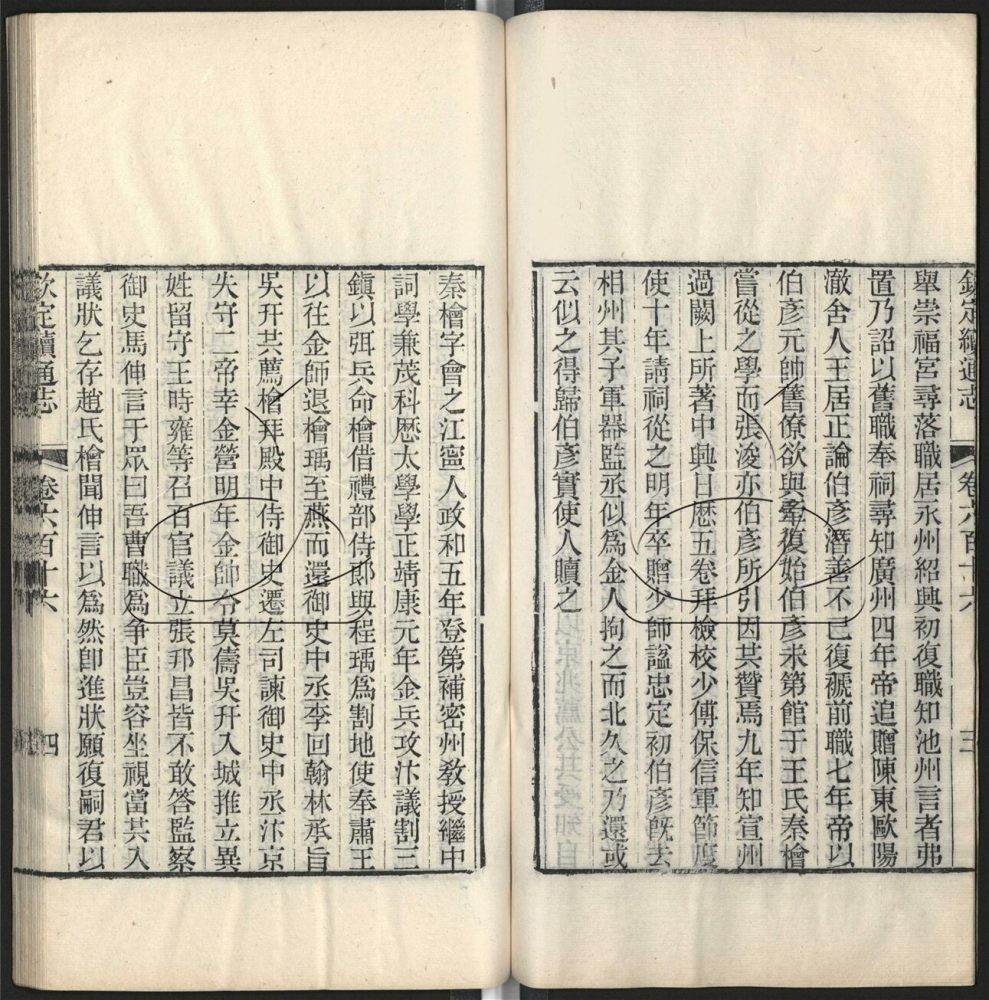 欽定續通志 卷六百十六 三
舉崇福宮尋落職居永州紹興初復職知池州言者弗
置乃詔以舊職奉祠尋知廣州四年帝追贈陳東歐陽
澈舍人王居正論伯彥潛善不已復褫前職七年帝以
伯彥元帥舊僚欲與牽復始伯彥未第館于王氏秦檜
嘗從之學而張浚亦伯彥所引因其贊焉九年知宣州
過闕上所著中興日歷五卷拜檢校少傅保信軍節度
使十年請祠從之明年卒贈少師諡忠定初伯彥旣去
相州其子軍器監丞似爲金人拘之而北久之乃還或
云似之得歸伯彥實使人贖之
秦檜字會之江寧人政和五年登第補密州敎授繼中
詞學兼茂科歷太學學正靖康元年金兵攻汴議割三
鎮以弭兵命檜借禮部侍郎與程瑀爲割地使奉肅王
以往金師退檜瑀至燕而還御史中丞李回翰林承旨
吳幵共薦檜拜殿中侍御史遷左司諫御史中丞汴京
失守二帝幸金營明年金帥令莫儔吳幵入城推立異
姓留守王時雍等召百官議立張邦昌皆不敢答監察
御史馬伸言于眾曰吾曹職爲爭臣豈容坐視當共入
議狀乞存趙氏檜聞伸言以爲然卽進狀願復嗣君以
欽定續通志 卷六百十六 四